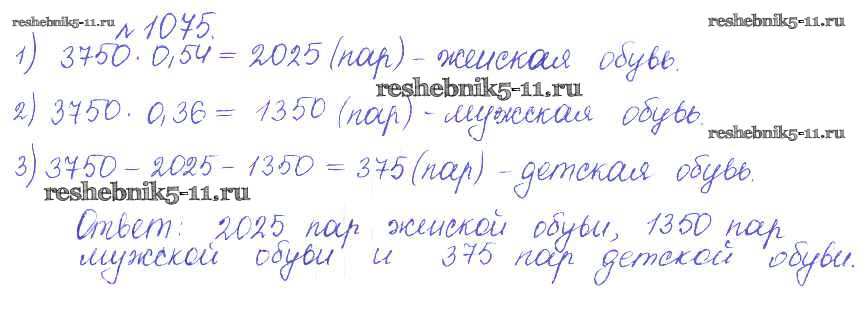 reshebnik5-11.ru
№ 1075.
reshebnik5-11.ru
1) 3750 · 0,54 = 2025 (пар) - женская обувь.
reshebnik5-11.ru
2) 3750 · 0,36 = 1350 (пар) - мужская обувь.
reshebnik5-11.ru
3) 3750 - 2025 - 1350 = 375 (пар) - детская обувь.
reshebnik5-11.ru
Ответ: 2025 пар женской обуви, 1350 пар
мужской обуви и 375 пар детской обуви.